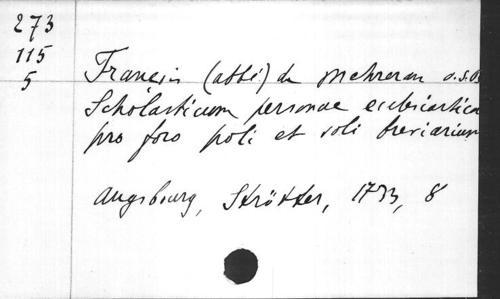 273
115
5
Francis (abbé) de Mehrerau o.s.B.
Scholasticum personae ecclesiastica
pro foro poli et soli breviarium
Augsbourg, Strötter, 1733, 8